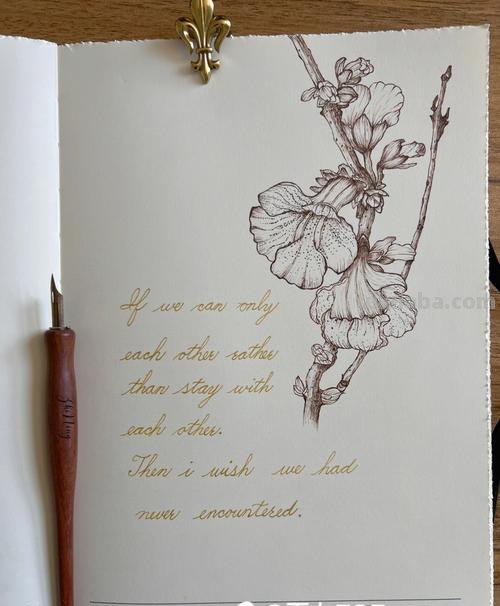 If we can only
each other rather
than stay with
each other.
Then i wish we had
never encountered.